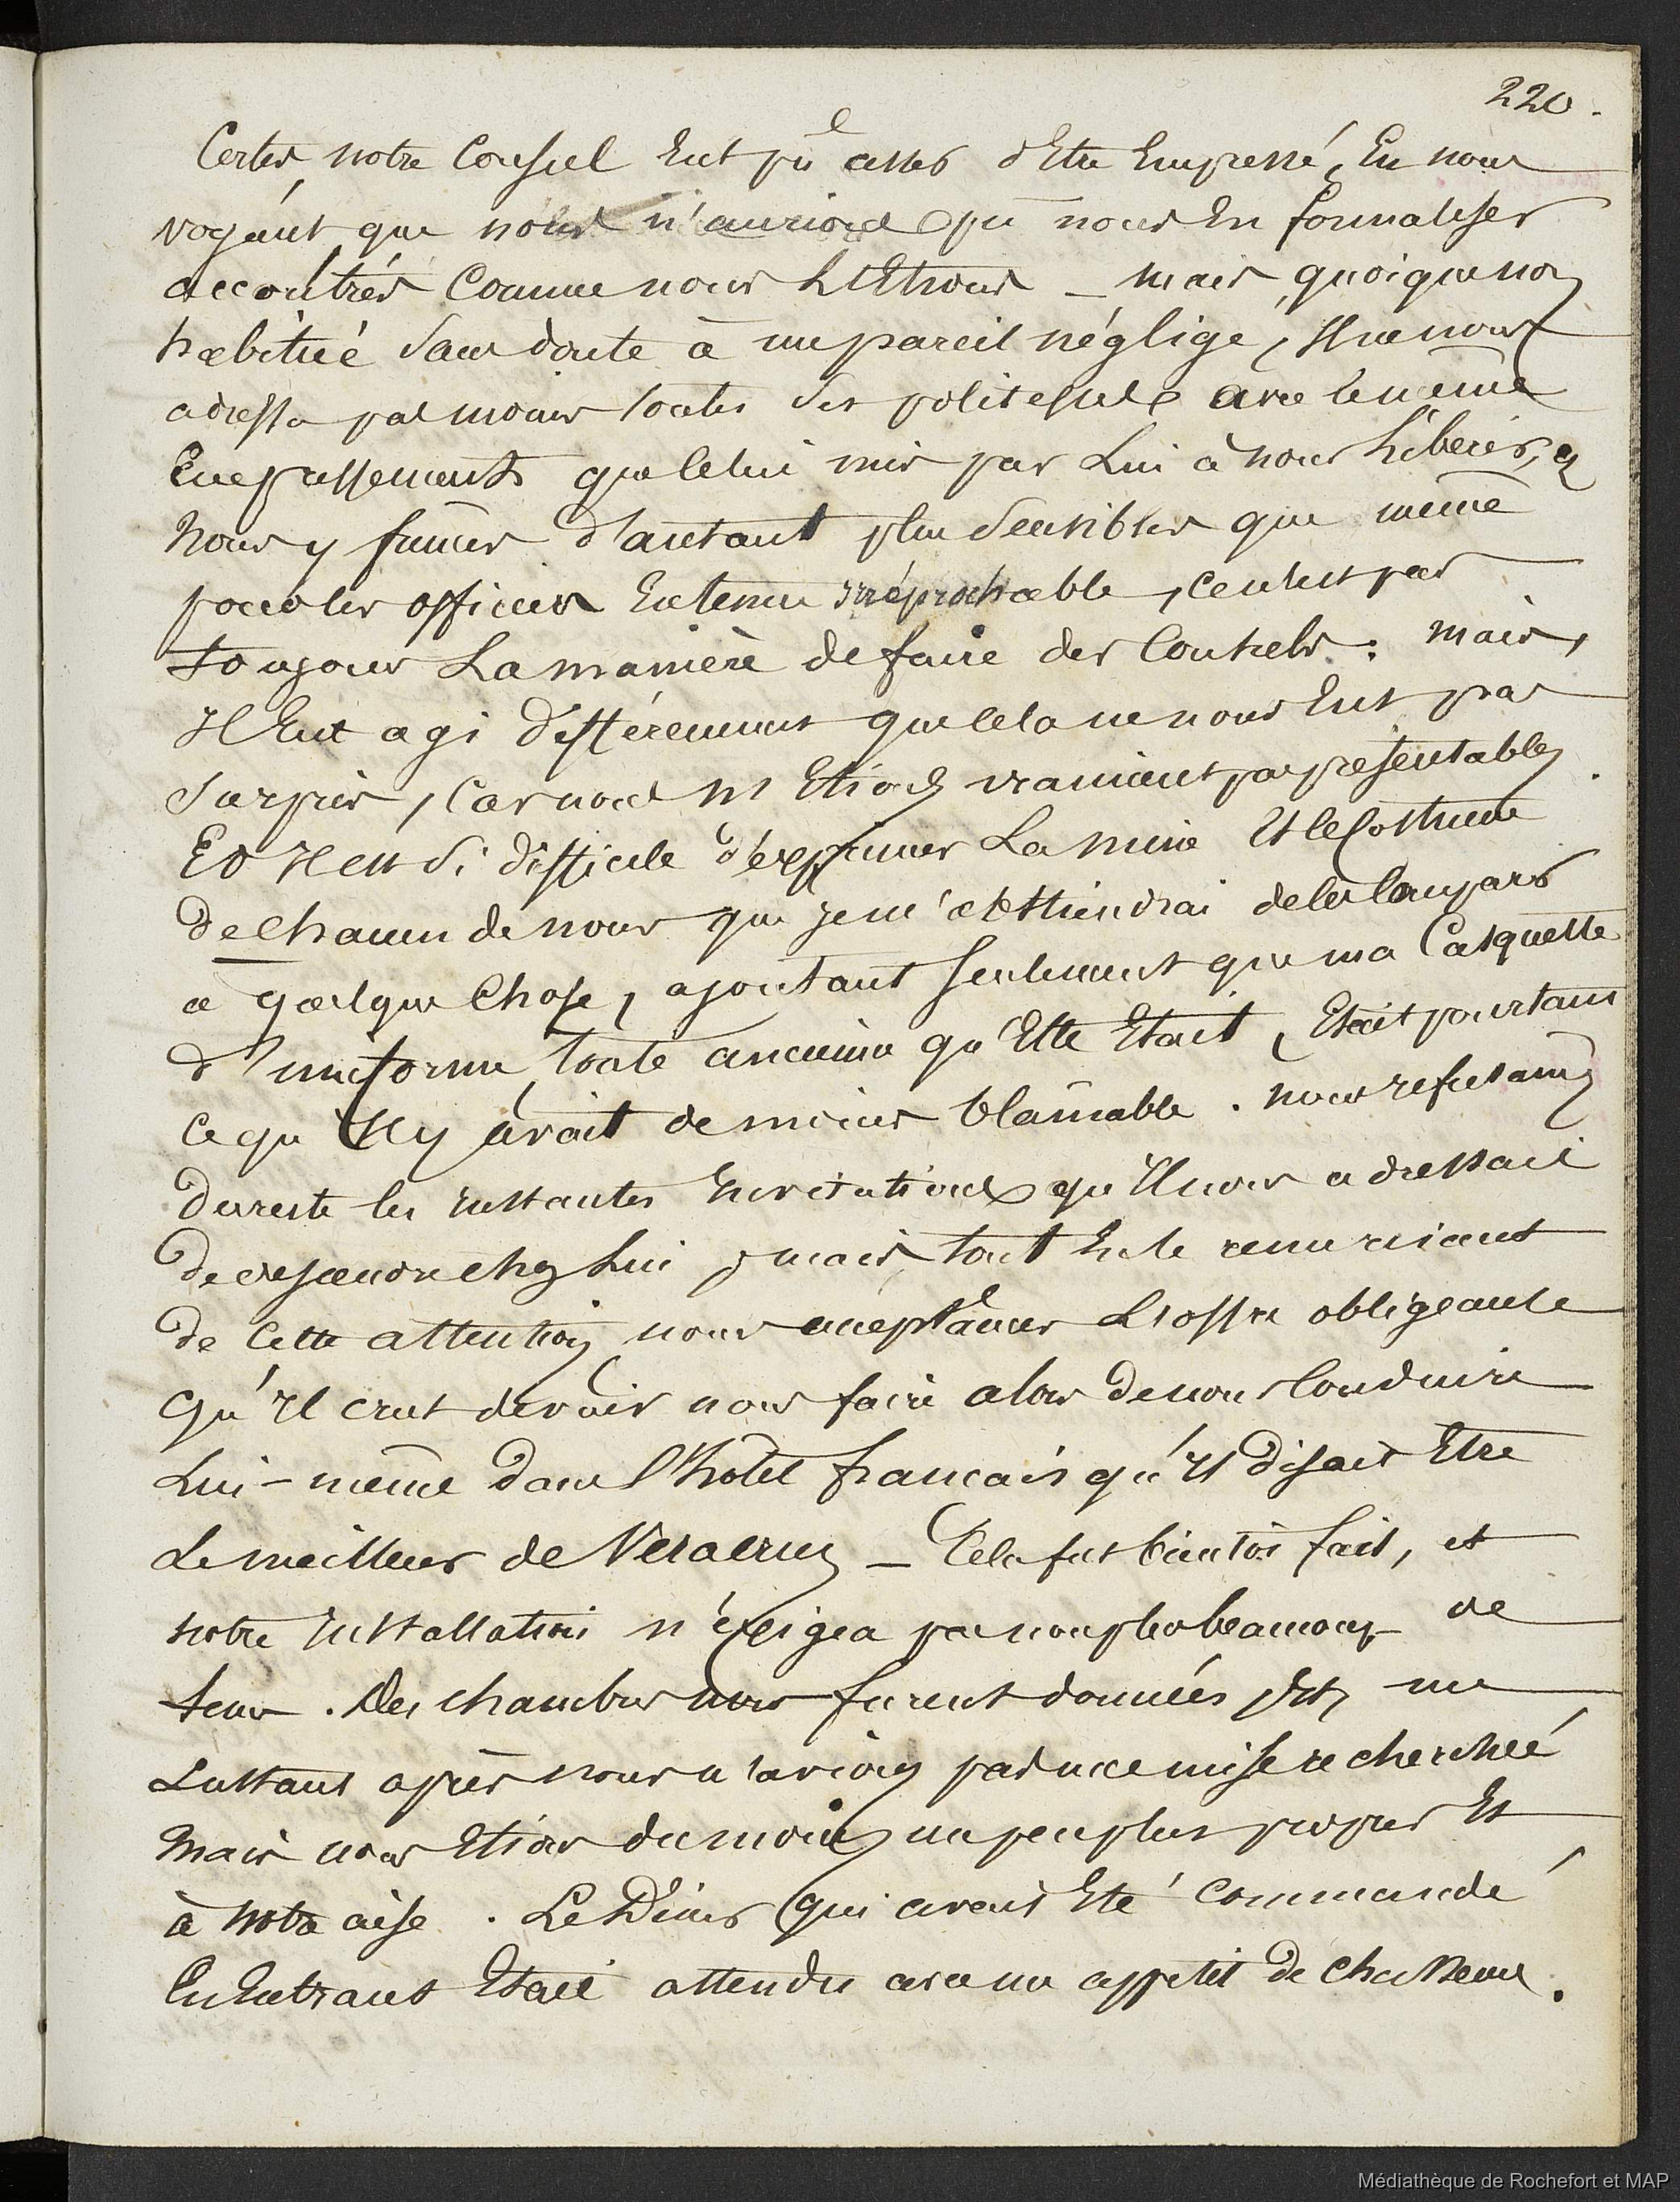 220.
Certes, notre Consul Eut pû cesser d'Etre Empressé, En nous
voyant que nous n'aurions pu nous En formaliser
accoutrés Comme nous L'Etions _ mais quoique non
habitué sans doute à un pareil négligé, Il ne nous
adressa pas moins toutes ses politesses avec le même
Empressement que celui mis par Lui à nous héberger, et
Nous y fumes d'autant plus sensibles que même
pour les officiers En tenue irréprochable, ce n'est pas
toujours La manière de faire des Consuls. mais,
Il Eut agi différemment que cela ne nous Eut pas
Surpris, Car nous n'Etions vraiment pas présentables.
Et Il est si difficile d'exprimer La mine Et le Costume
de chacun de nous que je m'abstiendrai de les Comparer
a quelque Chose, ajoutant seulement que ma Casquette
d'uniforme, toute ancienne qu'Elle Etait, Etait pourtant
Ce qu'Il y avait de moins blâmable. nous refusames
du reste les Instantes Invitations qu'Il nous adressait
de descendre chez Lui, mais tout En le remerciant
de Cette attention nous acceptâmes L'offre obligeante
qu'Il crut devoir nous faire alors de nous Conduire
Lui-même dans l'hôtel francais qu'Il disait Etre
Le meilleur de Veracruz _ Cela fut bientôt fait, et
notre Installation n'éxigea pas non plus beaucoup de
tems. Des chambres nous furent données Et, un
Instant après nous n'avions pas une mise recherchée
Mais nous Etions du moins un peu plus propres Et
à notre aise. Le Diner qui avait Eté Commandé
En Entrant Etait attendu avec un appetit de chasseur.
Médiathèque de Rochefort et MAP